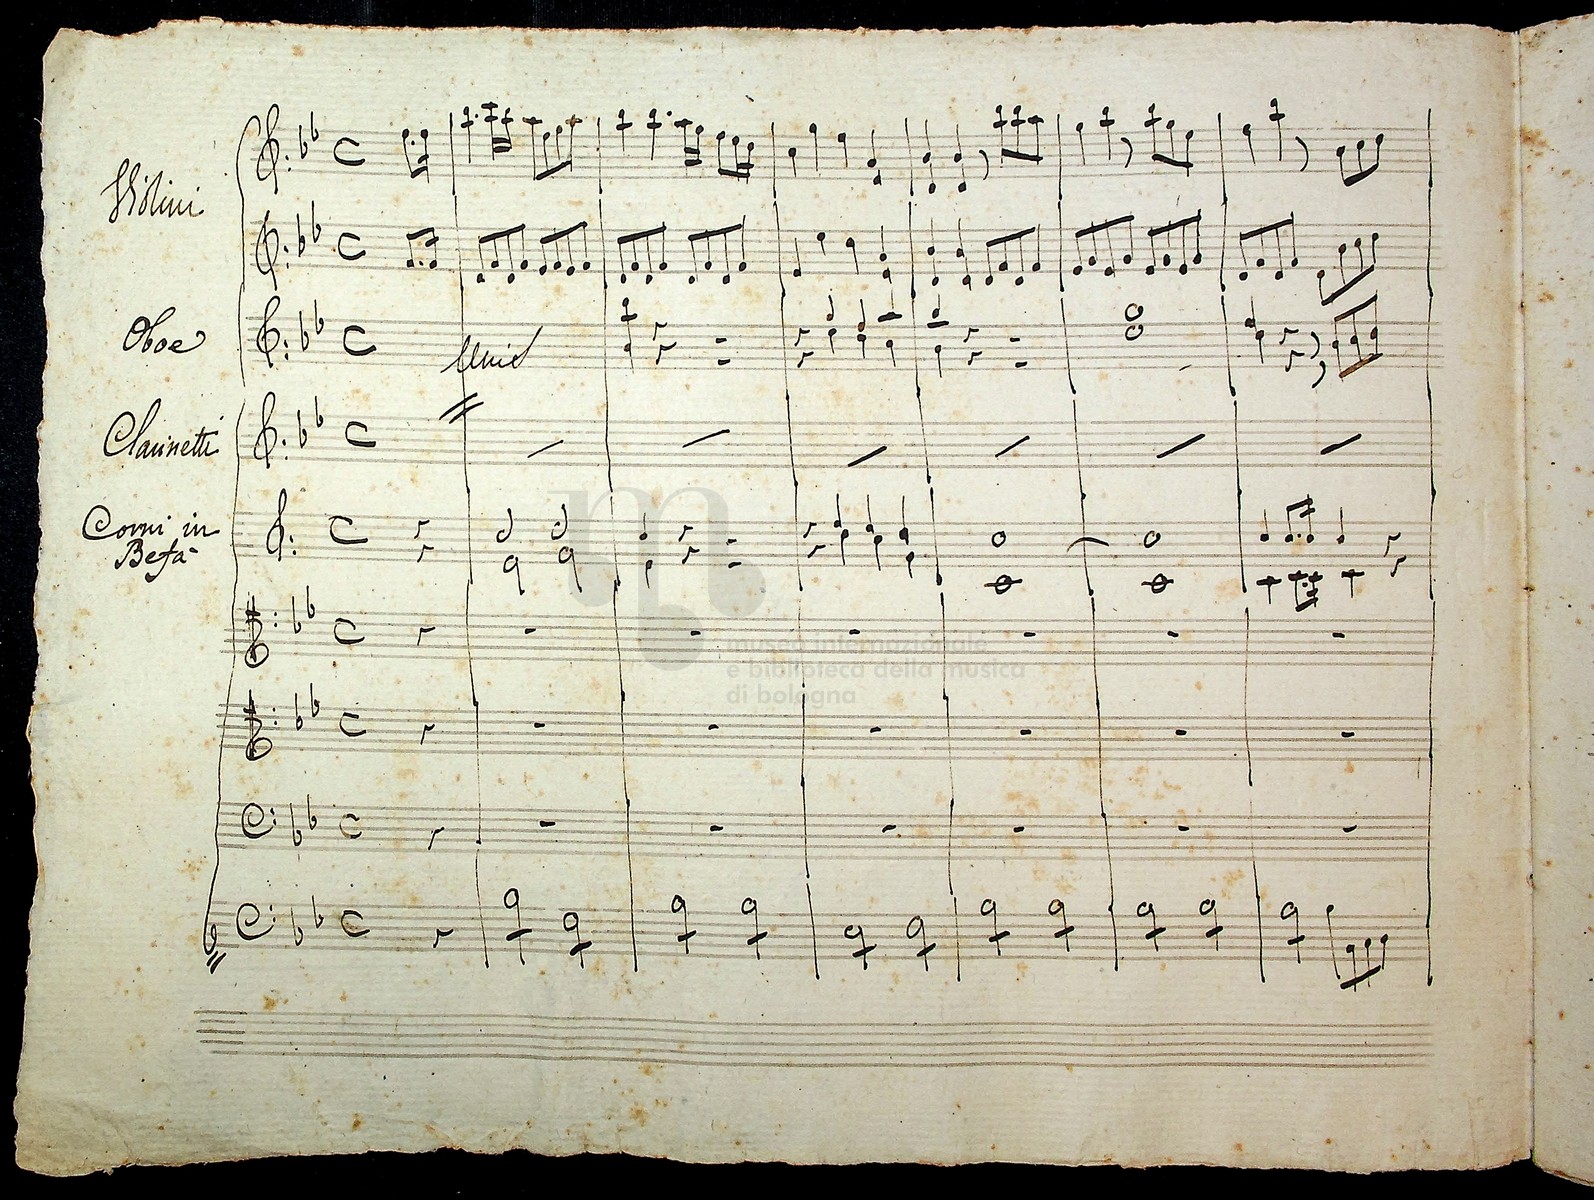 Violini
Oboe
Unis
Clarinetti
Corni in
Befà
museo internazionale
e biblioteca della musica
di bologna